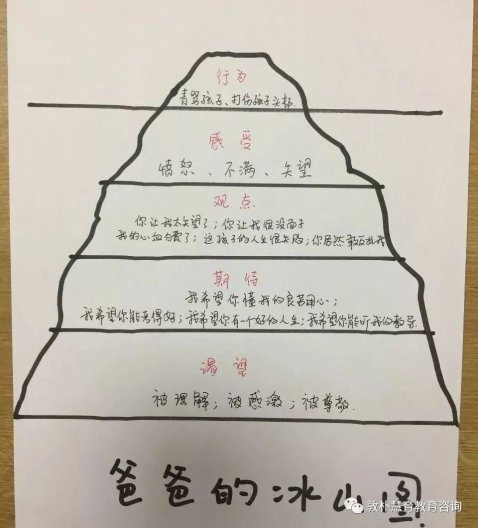 行为
责骂孩子、打伤孩子头部
感受
愤怒、不满、失望
观点
你让我太失望了；你让我很没面子
我的心血白费了；这孩子的人生很失败；你居然敢反抗我
期待
我希望你懂我的良苦用心；
我希望你能考得好；我希望你有一个好的人生；我希望你能听我的教导
渴望
被理解；被感激；被尊敬.
爸爸的冰山图
敦朴慧育教育咨询